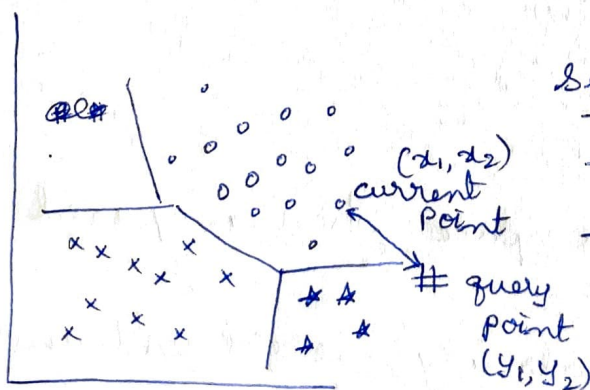 (x₁, x₂)
current
Point
# query
point
(y₁, y₂)